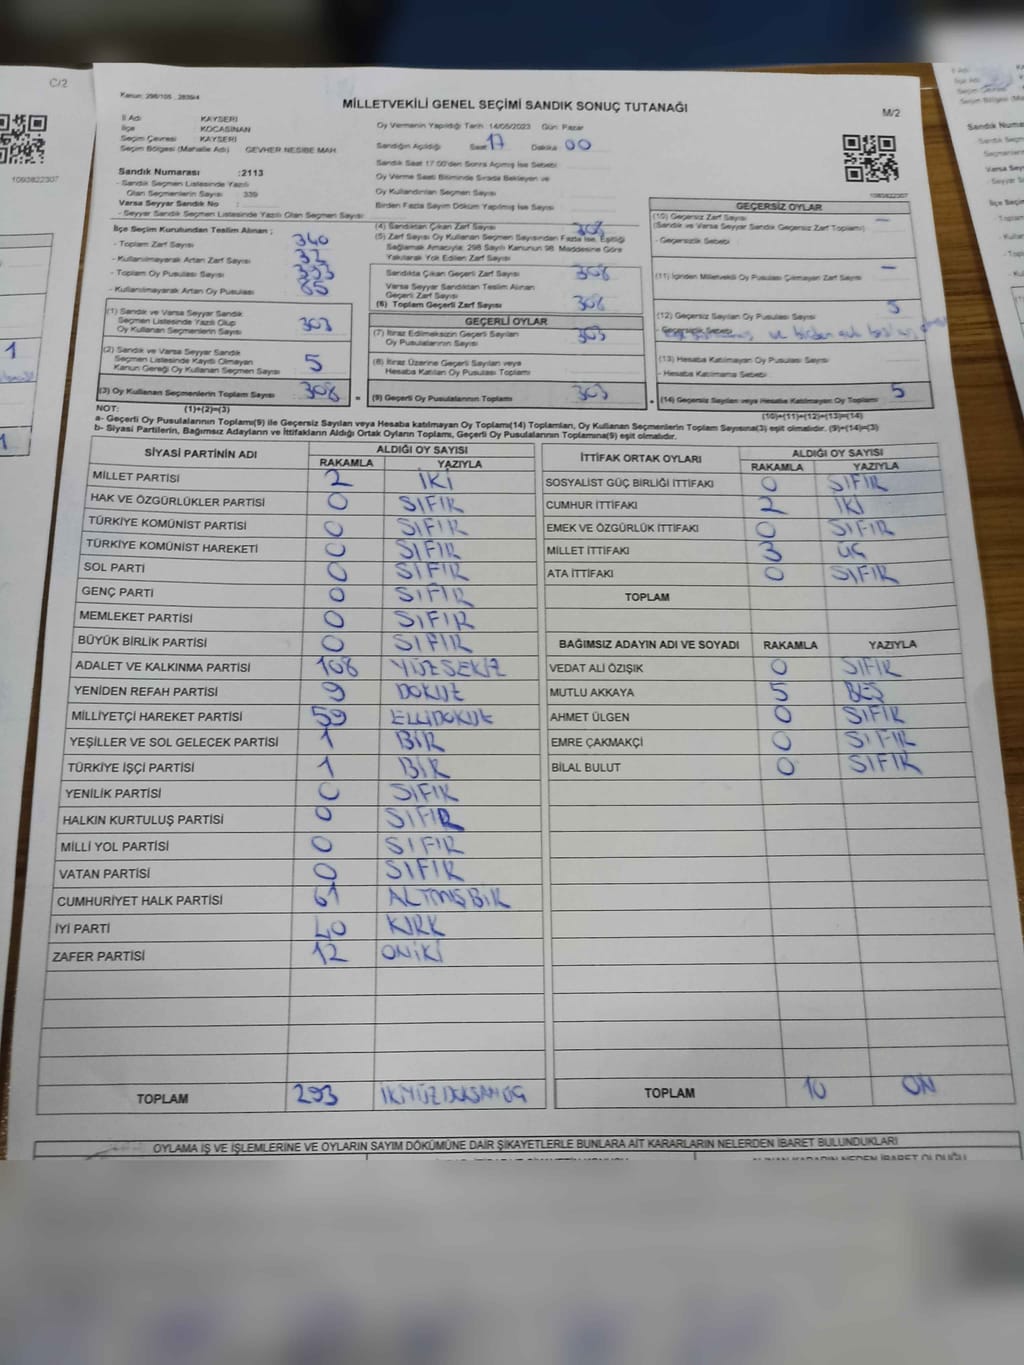 C/2
1093822307
1
1
Kanun: 298/105
MİLLETVEKİLİ GENEL SEÇİMİ SANDIK SONUÇ TUTANAĞI
M/2
İl Adı KAYSERİ
İlçe KOCASİNAN
Seçim Çevresi KAYSERİ
Seçim Bölgesi (Mahalle Adı) GEVHER NESİBE MAH.
Oy Vermenin Yapıldığı Tarih :14/05/2023 Gün: Pazar
Sandığın Açıldığı Saat 17 Dakika 00
Sandık Saat 17:00'den Sonra Açılmış İse Sebebi
Oy Verme Saati Bitiminde Sırada Bekleyen ve
Oy Kullandırılan Seçmen Sayısı
Birden Fazla Sayım Döküm Yapılmış İse Sayısı
1093822307
Sandık Numarası :2113
- Sandık Seçmen Listesinde Yazılı
Olan Seçmenlerin Sayısı : 339
Varsa Seyyar Sandık No :
- Seyyar Sandık Seçmen Listesinde Yazılı Olan Seçmen Sayısı:
İlçe Seçim Kurulundan Teslim Alınan ;
- Toplam Zarf Sayısı 340
- Kullanılmayarak Artan Zarf Sayısı
- Toplam Oy Pusulası Sayısı
- Kullanılmayarak Artan Oy Pusulası
(1) Sandık ve Varsa Seyyar Sandık
Seçmen Listesinde Yazılı Olup
Oy Kullanan Seçmenlerin Sayısı 303
(2) Sandık ve Varsa Seyyar Sandık
Seçmen Listesinde Kayıtlı Olmayan
Kanun Gereği Oy Kullanan Seçmen Sayısı 5
(3) Oy Kullanan Seçmenlerin Toplam Sayısı 308
(4) Sandıktan Çıkan Zarf Sayısı 308
(5) Zarf Sayısı Oy Kullanan Seçmen Sayısından Fazla İse, Eşitliği
Sağlamak Amacıyla; 298 Sayılı Kanunun 98. Maddesine Göre
Yakılarak Yok Edilen Zarf Sayısı
Sandıkta Çıkan Geçerli Zarf Sayısı 308
Varsa Seyyar Sandıktan Teslim Alınan
Geçerli Zarf Sayısı
(6) Toplam Geçerli Zarf Sayısı 308
GEÇERLİ OYLAR
(7) İtiraz Edilmeksizin Geçerli Sayılan
Oy Pusulalarının Sayısı 303
(8) İtiraz Üzerine Geçerli Sayılan veya
Hesaba Katılan Oy Pusulası Toplamı
= (9) Geçerli Oy Pusulalarının Toplamı 303
GEÇERSİZ OYLAR
(10) Geçersiz Zarf Sayısı —
(Sandık ve Varsa Seyyar Sandık Geçersiz Zarf Toplamı)
- Geçersizlik Sebebi :
(11) İçinden Milletvekili Oy Pusulası Çıkmayan Zarf Sayısı —
(12) Geçersiz Sayılan Oy Pusulası Sayısı 5
- Geçersizlik Sebebi ve birden
(13) Hesaba Katılmayan Oy Pusulası Sayısı
- Hesaba Katılmama Sebebi
+ (14) Geçersiz Sayılan veya Hesaba Katılmayan Oy Toplamı 5
NOT: (1)+(2)=(3) (10)+(11)+(12)+(13)=(14)
a- Geçerli Oy Pusulalarının Toplamı(9) ile Geçersiz Sayılan veya Hesaba katılmayan Oy Toplamı(14) Toplamları, Oy Kullanan Seçmenlerin Toplam Sayısına(3) eşit olmalıdır. (9)+(14)=(3)
b- Siyasi Partilerin, Bağımsız Adayların ve İttifakların Aldığı Ortak Oyların Toplamı, Geçerli Oy Pusulalarının Toplamına(9) eşit olmalıdır.
SİYASİ PARTİNİN ADI ALDIĞI OY SAYISI
RAKAMLA YAZIYLA
MİLLET PARTİSİ 2 İKİ
HAK VE ÖZGÜRLÜKLER PARTİSİ 0 SIFIR
TÜRKİYE KOMÜNİST PARTİSİ 0 SIFIR
TÜRKİYE KOMÜNİST HAREKETİ 0 SIFIR
SOL PARTİ 0 SIFIR
GENÇ PARTİ 0 SIFIR
MEMLEKET PARTİSİ 0 SIFIR
BÜYÜK BİRLİK PARTİSİ 0 SIFIR
ADALET VE KALKINMA PARTİSİ 108 YÜZSEKİZ
YENİDEN REFAH PARTİSİ 9 DOKUZ
MİLLİYETÇİ HAREKET PARTİSİ 59 ELLİDOKUZ
YEŞİLLER VE SOL GELECEK PARTİSİ 1 BİR
TÜRKİYE İŞÇİ PARTİSİ 1 BİR
YENİLİK PARTİSİ 0 SIFIR
HALKIN KURTULUŞ PARTİSİ 0 SIFIR
MİLLİ YOL PARTİSİ 0 SIFIR
VATAN PARTİSİ 0 SIFIR
CUMHURİYET HALK PARTİSİ 61 ALTMIŞBİR
İYİ PARTİ 40 KIRK
ZAFER PARTİSİ 12 ONİKİ
TOPLAM 293 İKİYÜZDOKSANÜÇ
İTTİFAK ORTAK OYLARI ALDIĞI OY SAYISI
RAKAMLA YAZIYLA
SOSYALİST GÜÇ BİRLİĞİ İTTİFAKI 0 SIFIR
CUMHUR İTTİFAKI 2 İKİ
EMEK VE ÖZGÜRLÜK İTTİFAKI 0 SIFIR
MİLLET İTTİFAKI 3 ÜÇ
ATA İTTİFAKI 0 SIFIR
TOPLAM
BAĞIMSIZ ADAYIN ADI VE SOYADI RAKAMLA YAZIYLA
VEDAT ALİ ÖZIŞIK 0 SIFIR
MUTLU AKKAYA 5 BEŞ
AHMET ÜLGEN 0 SIFIR
EMRE ÇAKMAKÇİ 0 SIFIR
BİLAL BULUT 0 SIFIR
TOPLAM 10 ON
OYLAMA İŞ VE İŞLEMLERİNE VE OYLARIN SAYIM DÖKÜMÜNE DAİR ŞİKAYETLERLE BUNLARA AİT KARARLARIN NELERDEN İBARET BULUNDUKLARI